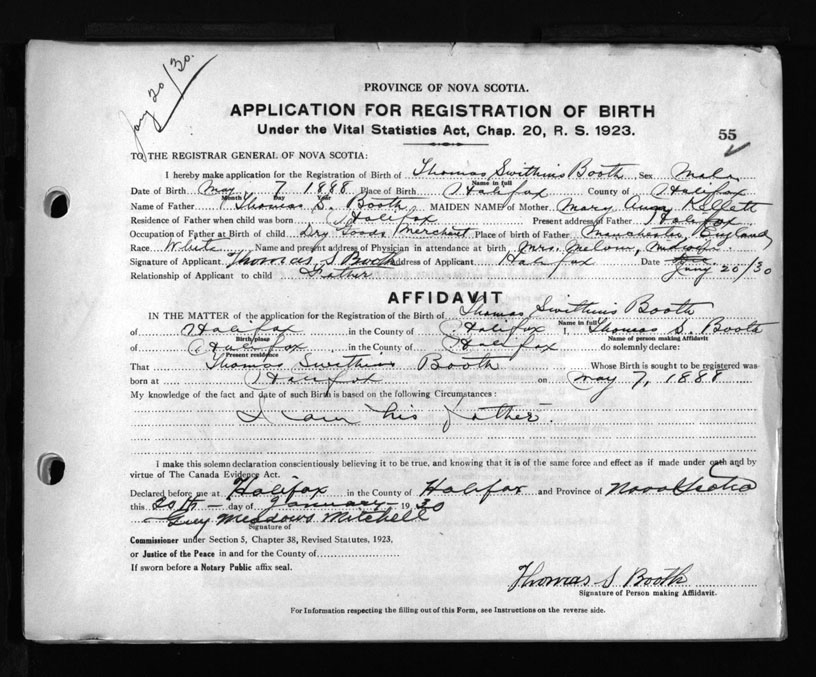 Jany 20/30.
PROVINCE OF NOVA SCOTIA.
APPLICATION FOR REGISTRATION OF BIRTH
Under the Vital Statistics Act, Chap. 20, R. S. 1923.
55
TO THE REGISTRAR GENERAL OF NOVA SCOTIA:
I hereby make application for the Registration of Birth of Thomas Swithins Booth Sex Male
Name in full
Date of Birth May 7 1888 Place of Birth Halifax County of Halifax
Month Day Year
Name of Father Thomas S. Booth MAIDEN NAME of Mother Mary Ann Kellett
Residence of Father when child was born Halifax Present address of Father Halifax
Occupation of Father at Birth of child Dry Goods Merchant Place of birth of Father Manchester England
Race White Name and present address of Physician in attendance at birth Mrs. Melvin,
Signature of Applicant Thomas S Booth address of Applicant Halifax Date Jany 20/30
Relationship of Applicant to child Father
AFFIDAVIT
IN THE MATTER of the application for the Registration of the Birth of Thomas Swithins Booth
Name in full
of Halifax in the County of Halifax I, Thomas S. Booth
Birthplace Name of person making Affidavit
of Halifax in the County of Halifax do solemnly declare:
Present residence
That Thomas Swithins Booth Whose Birth is sought to be registered was
born at Halifax on May 7, 1888
My knowledge of the fact and date of such Birth is based on the following Circumstances:
I am his father.
I make this solemn declaration conscientiously believing it to be true, and knowing that it is of the same force and effect as if made under oath and by
virtue of The Canada Evidence Act.
Declared before me at Halifax in the County of Halifax and Province of Nova Scotia
this 20th day of January 1930
Guy Meadows Mitchell
Signature of
Commissioner under Section 5, Chapter 38, Revised Statutes, 1923,
or Justice of the Peace in and for the County of
If sworn before a Notary Public affix seal.
Thomas S Booth
Signature of Person making Affidavit.
For Information respecting the filling out of this Form, see Instructions on the reverse side.